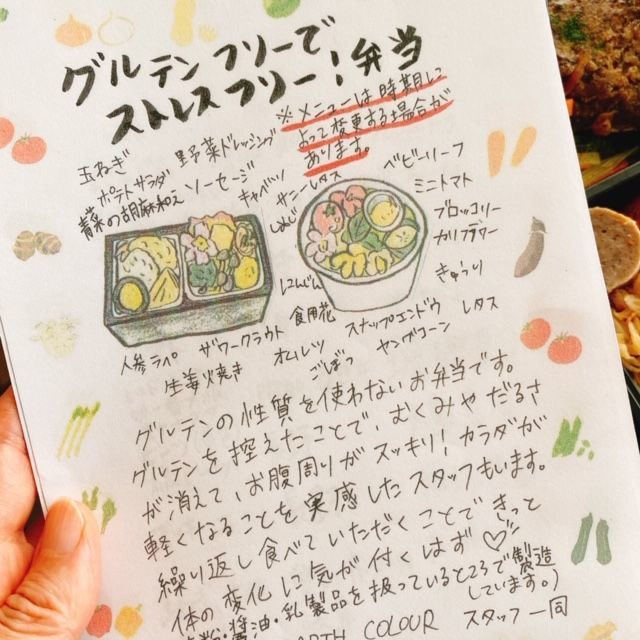 グルテンフリーで
ストレスフリー！弁当
※メニューは時期に
よって変更する場合が
あります。
玉ねぎ
野菜ドレッシング
ポテトサラダ
ソーセージ
キャベツ
サニーレタス
ベビーリーフ
青菜の胡麻和え
しめじ
ミニトマト
ブロッコリー
カリフラワー
きゅうり
にんじん
食用花
スナップエンドウ
レタス
人参ラペ
ザワークラウト
オムレツ
ヤングコーン
生姜焼き
ごぼう
グルテンの性質を使わないお弁当です。
グルテンを控えたことで、むくみやだるさ
が消えて、お腹周りがスッキリ！カラダが
軽くなることを実感したスタッフもいます。
繰り返し食べていただくことできっと
体の変化に気が付くはず♡
粉・醤油・乳製品を扱っているところで製造
しています。）
COLOUR スタッフ一同